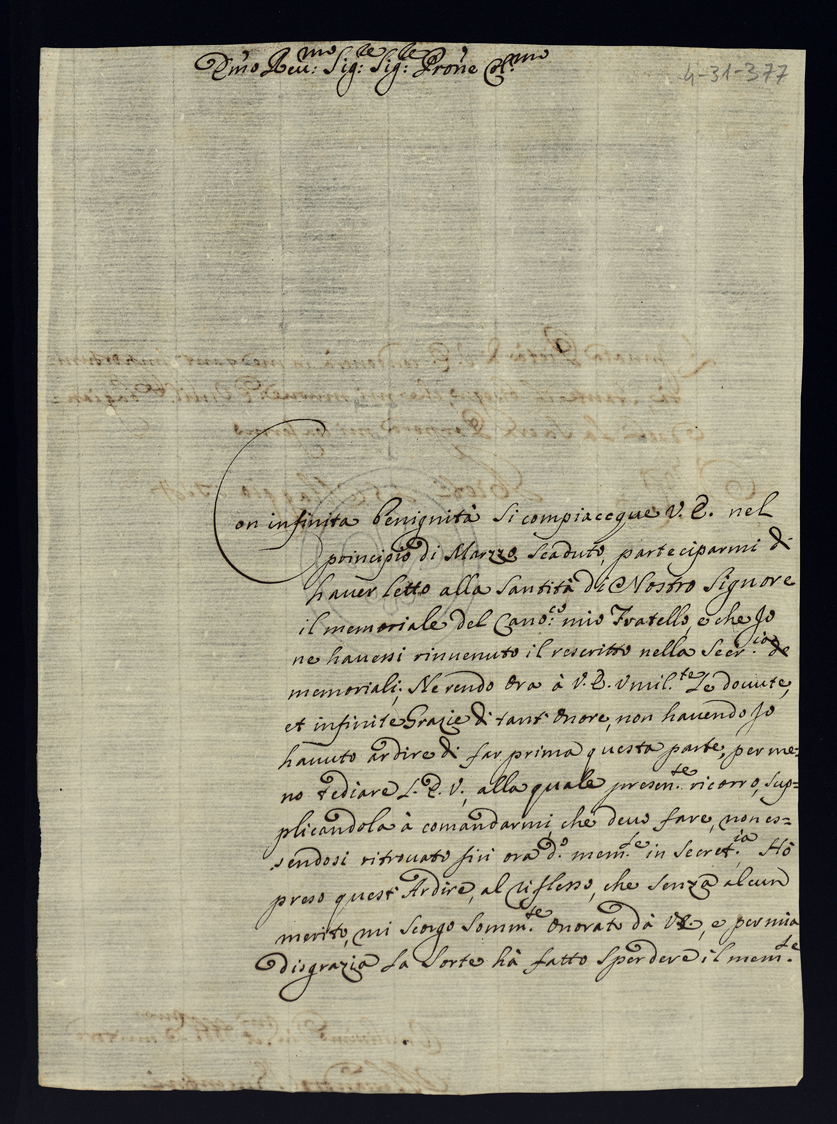 Em̃o Reu:mo Sig:re Sig:re Pron̄e Col:mo
4-31-377
Con infinita benignità si compiacque V. E. nel
principio di Marzo scaduto, parteciparmi di
hauer letto alla Santità di Nostro Signore
il memoriale del Cano:co mio Fratello, e che Io
ne hauessi rinuenuto il rescritto nella Secr:ia de
memoriali; Ne rendo ora à V. E. vmil:te le douute,
et infinite Grazie di tant' onore, non hauendo Io
hauuto ardire di far prima questa parte, per me=
no tediare l. E. V., alla quale presen:te ricorro, sup=
plicandola à comandarmi, che deuo fare, non es=
sendosi ritrouato fin ora d:o mem:le in Secret:ia, Hò
preso quest' Ardire, al riflesso, che senza alcun
merito, mi scorgo somm:te onorato dà VE, e per mia
disgrazia la sorte hà fatto sperdere il mem:le